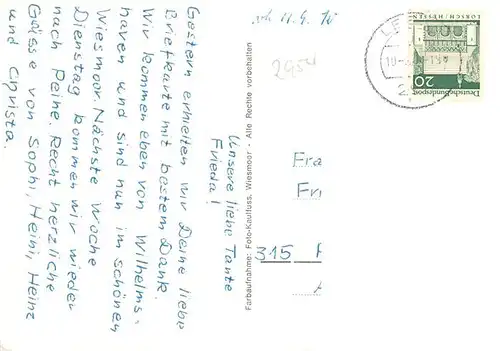 Unsere liebe Tante
Frieda!
Gestern erhielten wir Deine liebe
Briefkarte mit bestem Dank.
Wir kommen eben von Wilhelms-
haven und sind nun im schönen
Wiesmoor. Nächste Woche
Dienstag kommen wir wieder
nach Peine. Recht herzliche
Grüsse von Sophi, Heini, Heinz
und Christa.
Farbaufnahme: Foto-Kaulfuss, Wiesmoor - Alle Rechte vorbehalten
2954
LORSCH/HESSEN
20
Deutsche Bundespost
Fra
Fri
315 P